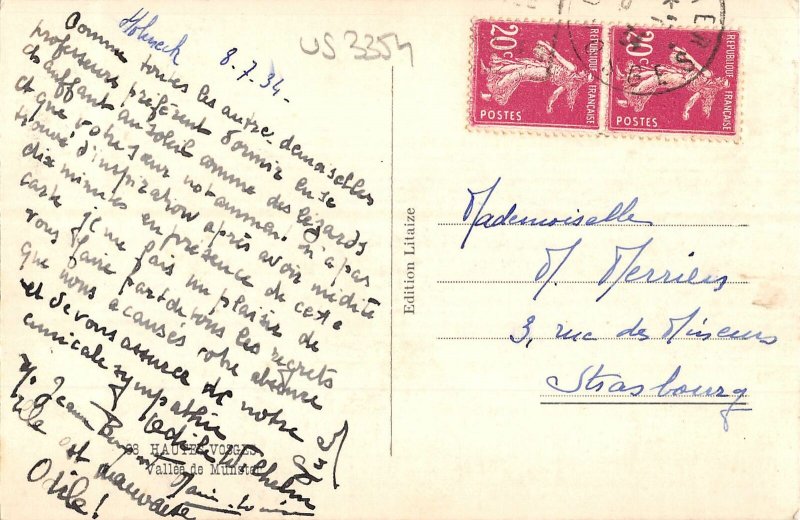 Hohneck 8.7.34-
US 3354
Comme toutes les autres demoiselles
professeurs préfèrent dormir en se
chauffant au soleil comme des lézards
et que votre sœur notamment n'a pas
trouvé d'inspiration après avoir médité
dix minutes en présence de cette
carte je me fais un plaisir de
vous faire part de tous les regrets
que nous a causés votre absence
et de vous assurer de notre
amicale sympathie
Odile
et mauvaise
Odile!
68 HAUTES VOSGES
Vallée de Munster
Edition Litaize
20c
REPUBLIQUE FRANÇAISE
POSTES
20c
REPUBLIQUE FRANÇAISE
POSTES
Mademoiselle
M. Merriens
3, rue des Mineurs
Strasbourg